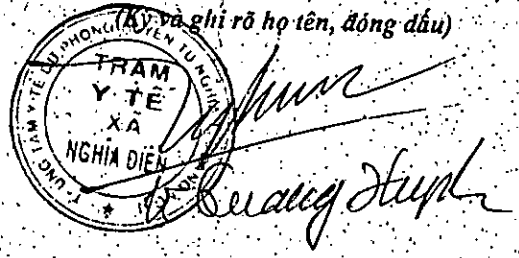 (Ký và ghi rõ họ tên, đóng dấu)
TRUNG TÂM Y TẾ DỰ PHÒNG HUYỆN TƯ NGHĨA
TRẠM
Y TẾ
XÃ
NGHĨA ĐIỀN
Quang